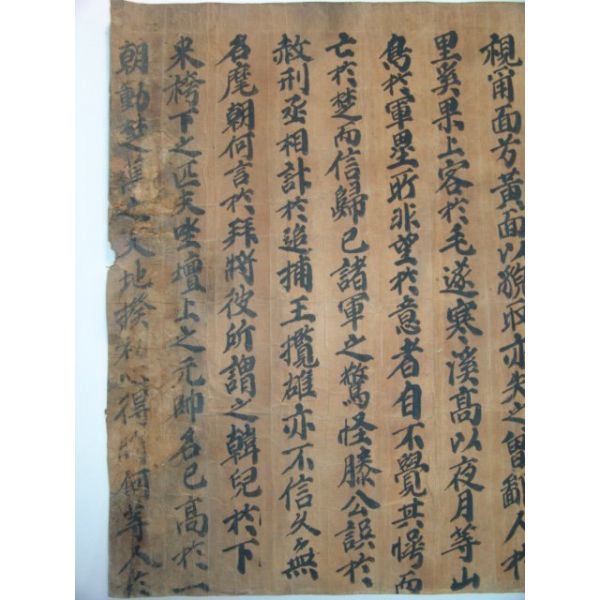 視甯面方黃面以貌取亦失之曾鄙人於
里奚果上客於毛遂寒溪高以夜月等山
烏於軍壘所非望於意者自不覺其愕而
亡於楚而信歸已諸軍之驚怪滕公誤於
赦刑丞相訃於追捕王攬雄亦不信久無
名麾朝何言於拜將彼所謂之韓兒於下
来袴下之匹夫坐壇上之元帥名已高於一
朝動楚舊之天地揆初心得何等人於